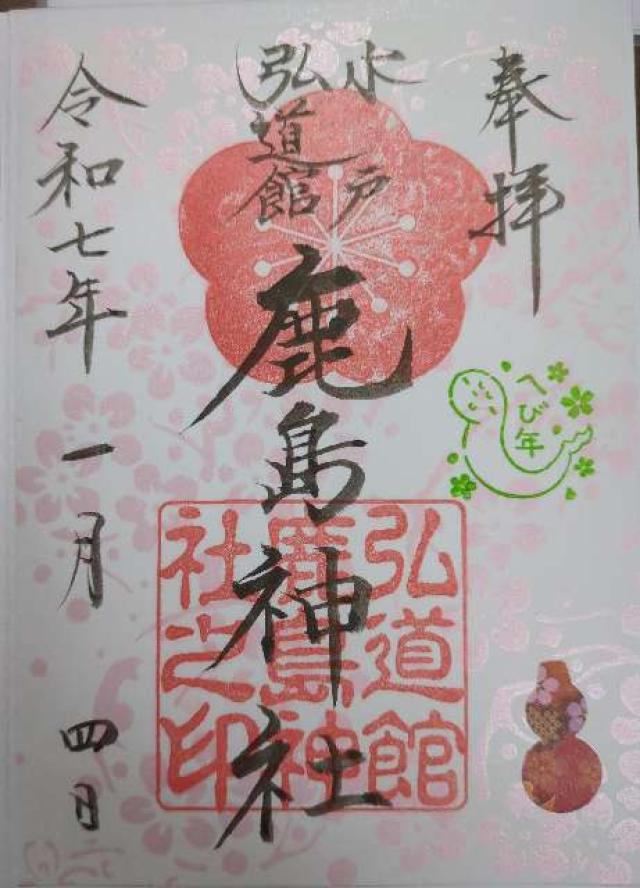 奉拝
水戸
弘道館
鹿島神社
令和七年一月四日
へび年
弘道館
鹿島神
社之印